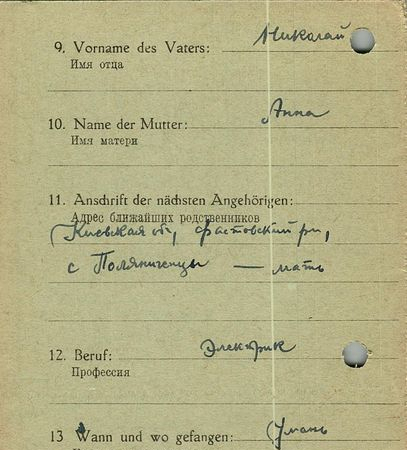 9. Vorname des Vaters: Николай
Имя отца
10. Name der Mutter: Анна
Имя матери
11. Anschrift der nächsten Angehörigen:
Адрес ближайших родственников
Киевская об, Фастовский р-н,
с Поляниченцы — мать
12. Beruf: Электрик
Профессия
13 Wann und wo gefangen: Умань